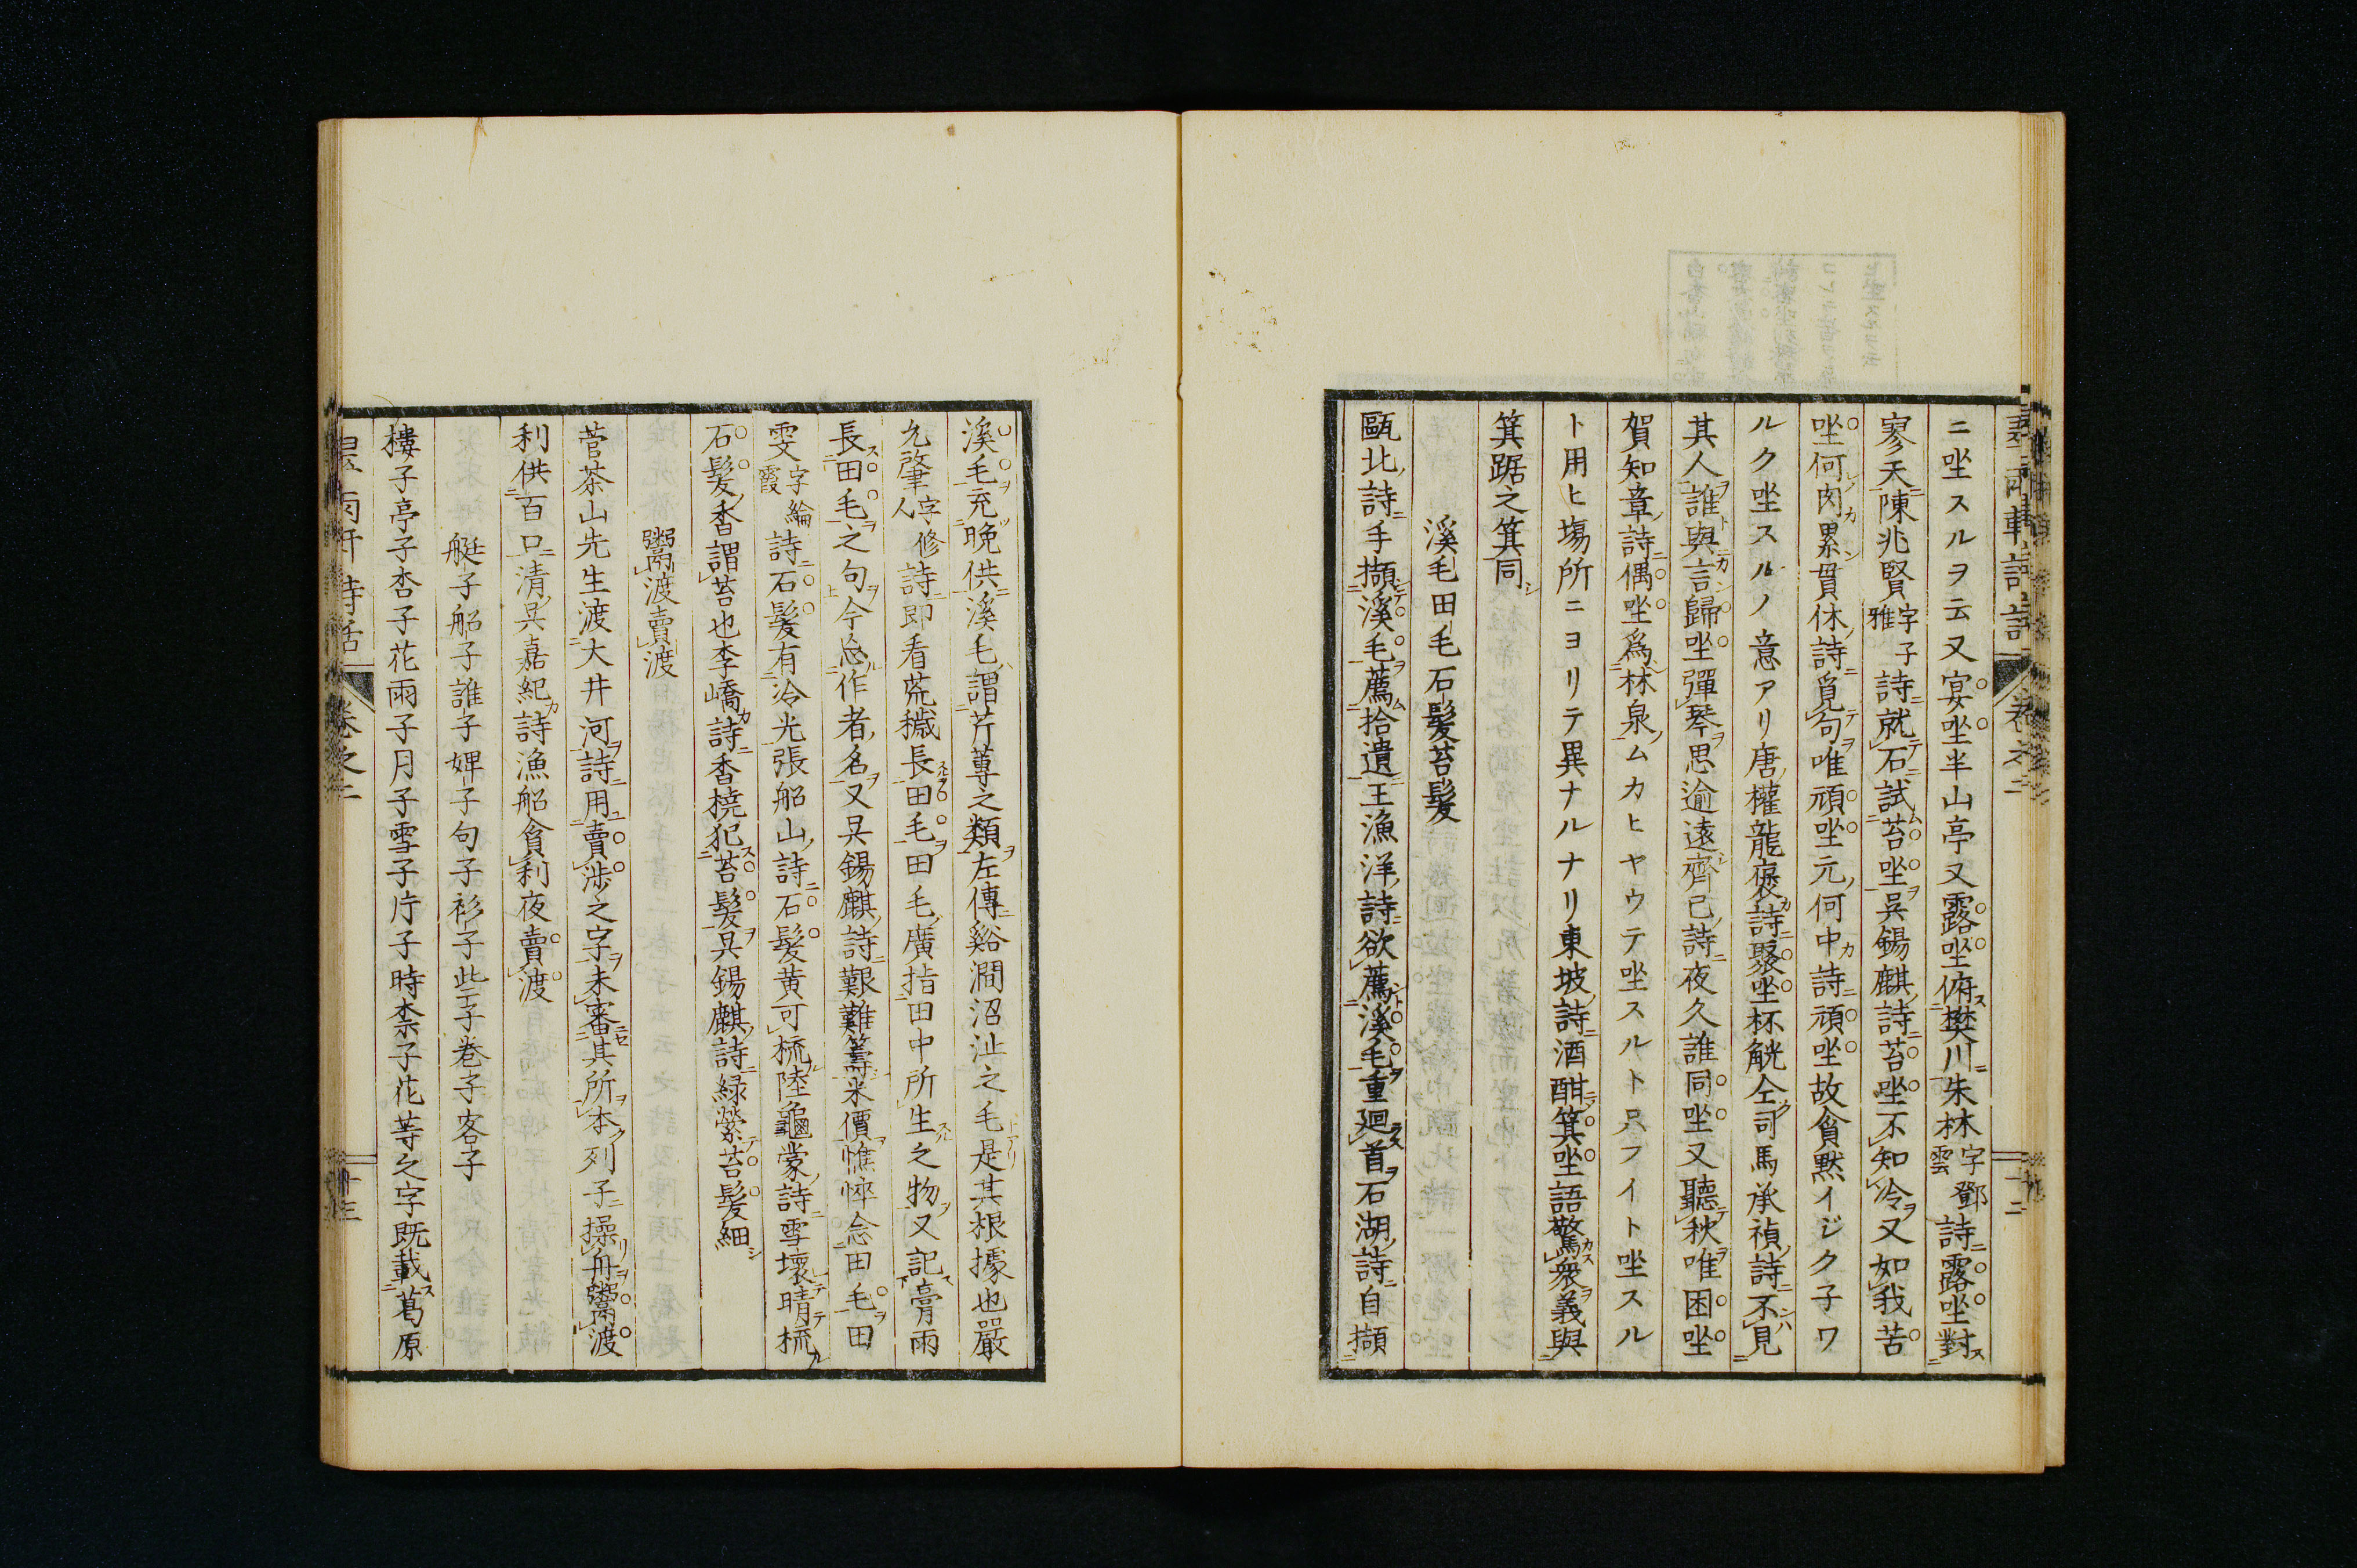 ニ坐スルヲ云又宴坐半山亭又露坐俯樊川朱林字鄧雲詩露坐對
寥天陳兆賢字子雅詩就石試苔坐吳錫麒詩苔坐不知冷又如我苦
坐何肉累貫休詩覓句唯頑坐元何中詩頑坐故貪黙イジク子ワ
ルク坐スルノ意アリ唐權龍褒詩聚坐杯觥仝司馬承禎詩不見
其人誰與言歸坐彈琴思逾遠齊己詩夜久誰同坐又聽秋唯困坐
賀知章詩偶坐爲林泉ムカヒヤウテ坐スルト只フイト坐スル
ト用ヒ塲所ニヨリテ異ナルナリ東坡詩酒酣箕坐語驚衆義與
箕踞之箕同
溪毛田毛石髮苔髮
甌北詩手擷溪毛薦拾遺王漁洋詩欲薦溪毛重廻首石湖詩自擷
溪毛充晚供溪毛謂芹蓴之類左傳谿澗沼沚之毛是其根據也嚴
允肇字修人詩即看荒穢長田毛田毛廣指田中所生之物又記膏雨
長田毛之句今忘作者名又吳錫麒詩艱難籌米價憔悴念田毛田
雯字綸霞詩石髮有冷光張船山詩石髮黄可梳陸龜蒙詩雪壞晴梳
石髮香謂苔也李嶠詩香橈犯苔髮吳錫麒詩緑縈苔髮細
鬻渡賣渡
菅茶山先生渡大井河詩用賣渉之字未審其所本列子操舟鬻渡
利供百口清吳嘉紀詩漁船貪利夜賣渡
艇子船子誰子婢子句子衫子些子巻子客子
樓子亭子杏子花雨子月子雪子片子時柰子花等之字既載葛原